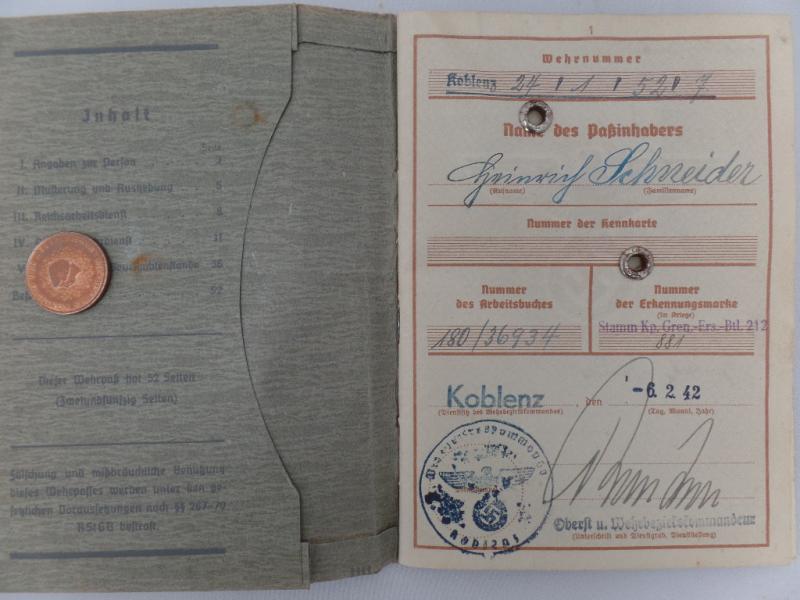 Inhalt
Seite
I. Angaben zur Person 2
II. Musterung und Aushebung 5
III. Reichsarbeitsdienst 8
IV 11
V 36
52
Dieser Wehrpaß hat 52 Seiten
(Zweiundfünfzig Seiten)
Fälschung und mißbräuchliche Benützung
dieses Wehrpasses werden unter den ge-
setzlichen Voraussetzungen nach §§ 267-79
RStGB bestraft.
1
Wehrnummer
Koblenz 24 1 52 7
Name des Paßinhabers
Heinrich Schneider
(Rufname) (Familienname)
Nummer der Kennkarte
Nummer
des Arbeitsbuches
180/36934
Nummer
der Erkennungsmarke
(im Kriege)
Stamm Kp. Gren.-Ers.-Btl. 212
881
Koblenz den -6. 2. 42
(Dienstsitz des Wehrbezirkskommandos) (Tag, Monat, Jahr)
Wehrbezirkskommando
Koblenz
Oberst u. Wehrbezirkskommandeur
(Unterschrift und Dienstgrad, Dienststellung)